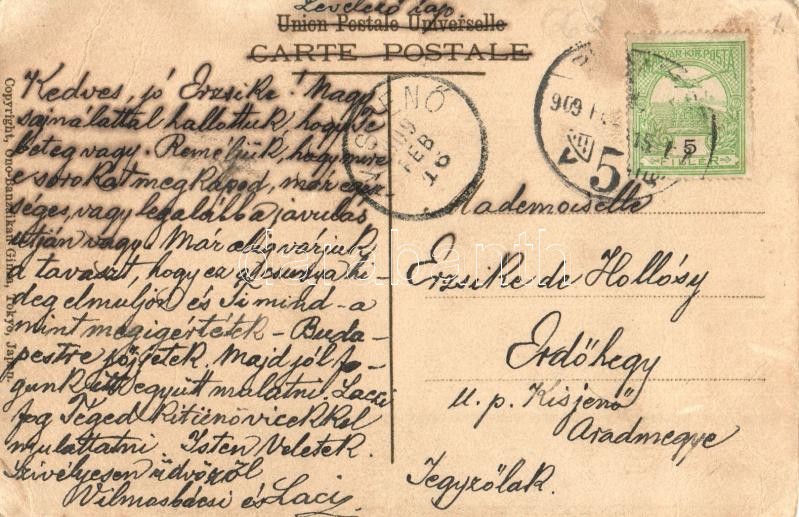 Levelező lap
Union Postale Universelle
CARTE POSTALE
Kedves, jó Erzsike! Nagy
sajnálattal hallottuk, hogy Te
beteg vagy. Reméljük, hogy mire
e sorokat megkapod, már egész-
séges, vagy legalább a javulás
útján vagy. Már alig várjuk
a tavaszt, hogy ez a csunya hi-
deg elmuljon és Ti mind - a
mint megigértétek - Buda-
pestre jöjjetek. Majd jól fo-
gunk itt együtt mulatni. Laczi
fog Téged kitünő viccekkel
mulattatni. Isten Veletek.
Szivélyesen üdvözöl
Vilmosbácsi és Laci
Copyright, Ono-Banzaikan Ginza, Tokyo, Japan.
KISJENŐ
909
FEB
16
909
5
MAGYAR KIR. POSTA
5
FILLÉR
Mademoiselle
Erzsike de Hollósy
Erdőhegy
u. p. Kisjenő
Aradmegye
Jegyzőlak.
darabanth